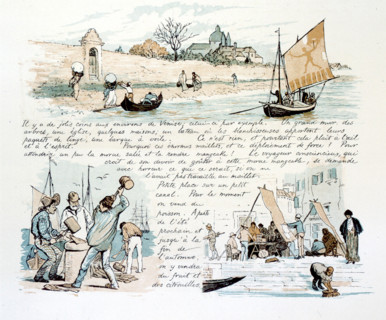 Il y a de jolis coins aux environs de Venise, celui-ci par exemple. Un grand mur, des
arbres, une église, quelques maisons, un bateau où les blanchisseuses apportent leurs
paquets de linge, une barque à voile. Ce n'est rien, et pourtant cela plaît à l'œil
et à l'esprit. Pourquoi ces énormes maillets, et ce déploiement de force? Pour
attendrir un peu la morue salée et la rendre mangeable! Le voyageur consciencieux, qui
croit de son devoir de goûter à cette manne mangeable, se demande,
avec horreur ce que ce serait, si on ne
l'avait pas travaillée au maillet.
Petite place sur un petit
canal. Pour le moment
on vend du
poisson. Après
de l'été
prochain et
jusqu'à la
fin de
l'automne,
on y vendra
du fruit et
des citrouilles.